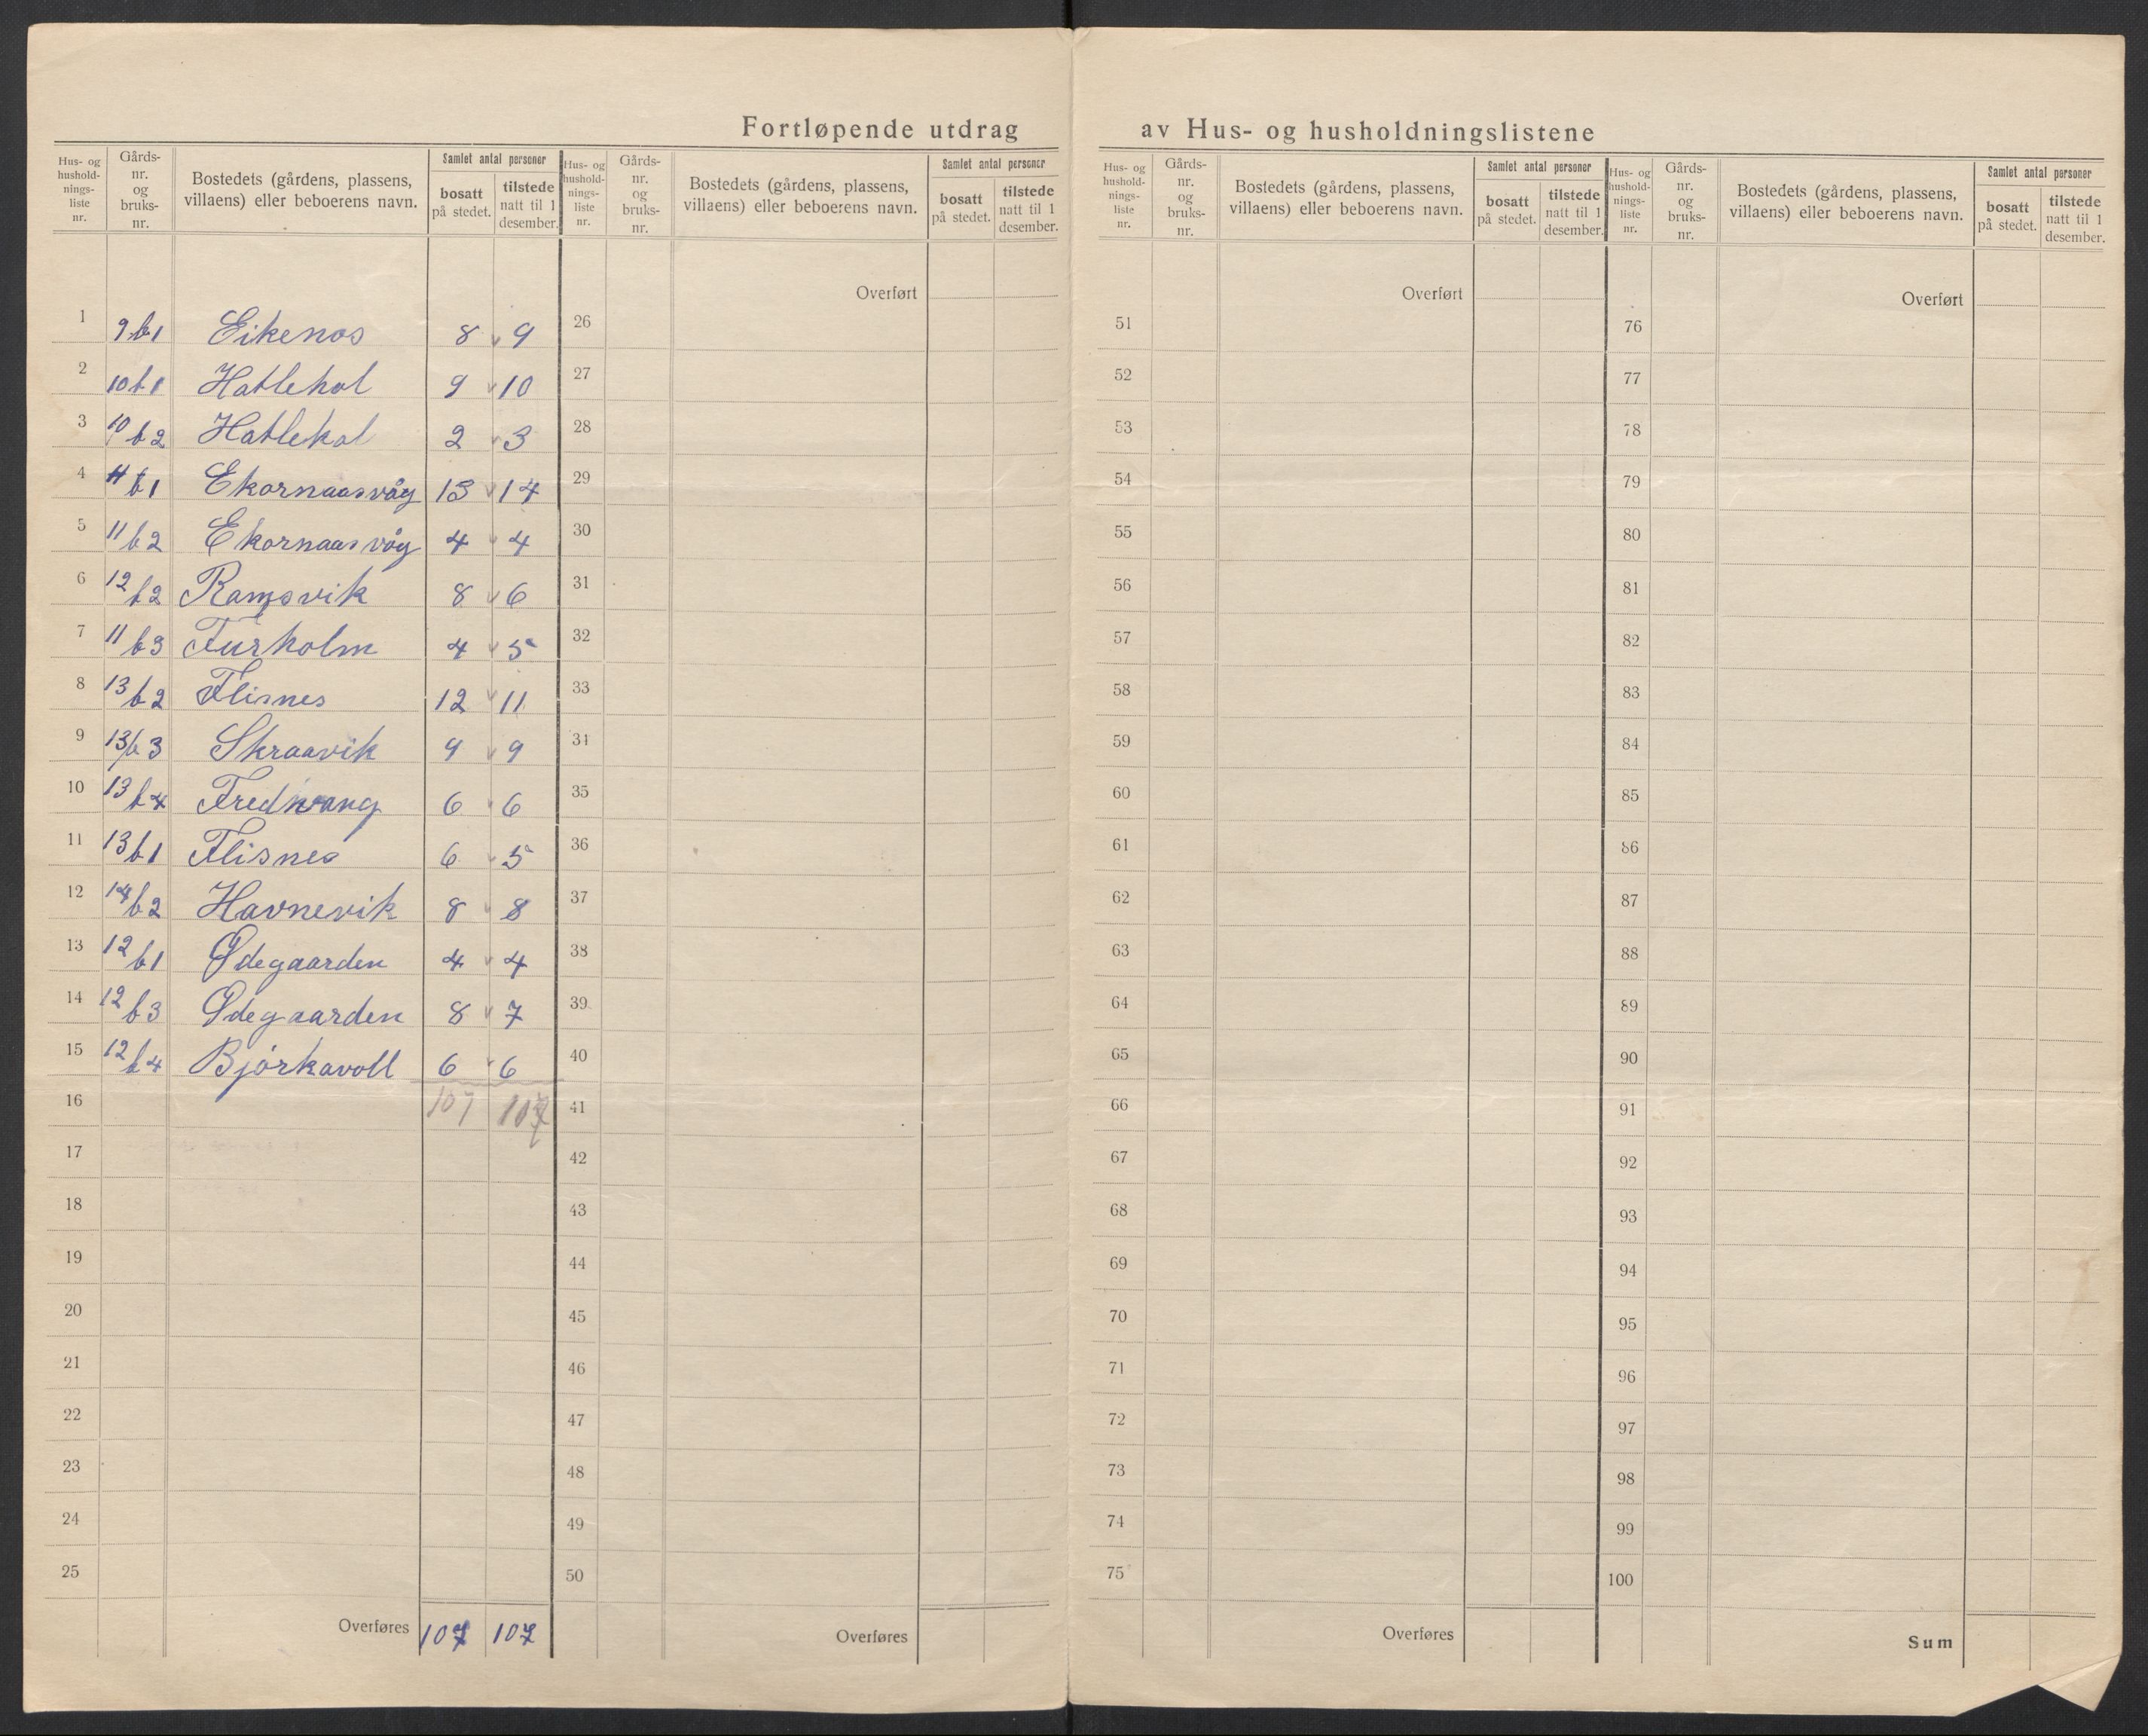 Fortløpende utdrag av Hus- og husholdningslistene
Hus- og
hushold-
nings-
liste
nr.
Gårds-
nr.
og
bruks-
nr.
Bostedets (gårdens, plassens,
villaens) eller beboerens navn.
Samlet antal personer
bosatt
på stedet.
tilstede
natt til 1
desember.
1 9 b1 Eikenos 8 v 9
2 10 b1 Hatlehol 9 v 10
3 10 b2 Hatlehol 2 v 3
4 11 b1 Ekornaasvåg 13 v 14
5 11 b2 Ekornaasvåg 4 v 4
6 12 b2 Ramsvik 8 v 6
7 11 b3 Furholm 4 v 5
8 13 b2 Flisnes 12 v 11
9 13 b3 Skraavik 9 v 9
10 13 b4 Fredvang 6 v 6
11 13 b1 Flisnes 6 v 5
12 14 b2 Havnevik 8 v 8
13 12 b1 Ødegaarden 4 v 4
14 12 b3 Ødegaarden 8 v 7
15 12 b4 Bjørkavoll 6 v 6
16 107 107
17
18
19
20
21
22
23
24
25
Overføres 107 107
Hus- og
hushold-
nings-
liste
nr.
Gårds-
nr.
og
bruks-
nr.
Bostedets (gårdens, plassens,
villaens) eller beboerens navn.
Samlet antal personer
bosatt
på stedet.
tilstede
natt til 1
desember.
Overført
26
27
28
29
30
31
32
33
34
35
36
37
38
39
40
41
42
43
44
45
46
47
48
49
50
Overføres
Hus- og
hushold-
nings-
liste
nr.
Gårds-
nr.
og
bruks-
nr.
Bostedets (gårdens, plassens,
villaens) eller beboerens navn.
Samlet antal personer
bosatt
på stedet.
tilstede
natt til 1
desember.
Overført
51
52
53
54
55
56
57
58
59
60
61
62
63
64
65
66
67
68
69
70
71
72
73
74
75
Overføres
Hus- og
hushold-
nings-
liste
nr.
Gårds-
nr.
og
bruks-
nr.
Bostedets (gårdens, plassens,
villaens) eller beboerens navn.
Samlet antal personer
bosatt
på stedet.
tilstede
natt til 1
desember.
Overført
76
77
78
79
80
81
82
83
84
85
86
87
88
89
90
91
92
93
94
95
96
97
98
99
100
Sum